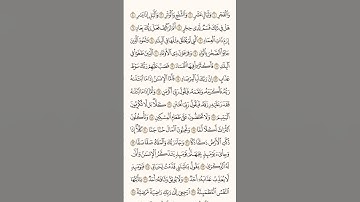 وَالْفَجْرِ ١ وَلَيَالٍ عَشْرٍ ٢ وَالشَّفْعِ وَالْوَتْرِ ٣ وَاللَّيْلِ إِذَا يَسْرِ ٤
هَلْ فِي ذَٰلِكَ قَسَمٌ لِّذِي حِجْرٍ ٥ أَلَمْ تَرَ كَيْفَ فَعَلَ رَبُّكَ بِعَادٍ ٦
إِرَمَ ذَاتِ الْعِمَادِ ٧ الَّتِي لَمْ يُخْلَقْ مِثْلُهَا فِي الْبِلَادِ ٨ وَثَمُودَ الَّذِينَ
جَابُوا الصَّخْرَ بِالْوَادِ ٩ وَفِرْعَوْنَ ذِي الْأَوْتَادِ ١٠ الَّذِينَ طَغَوْا فِي
الْبِلَادِ ١١ فَأَكْثَرُوا فِيهَا الْفَسَادَ ١٢ فَصَبَّ عَلَيْهِمْ رَبُّكَ سَوْطَ
عَذَابٍ ١٣ إِنَّ رَبَّكَ لَبِالْمِرْصَادِ ١٤ فَأَمَّا الْإِنسَانُ إِذَا مَا ابْتَلَاهُ
رَبُّهُ فَأَكْرَمَهُ وَنَعَّمَهُ فَيَقُولُ رَبِّي أَكْرَمَنِ ١٥ وَأَمَّا إِذَا مَا ابْتَلَاهُ
فَقَدَرَ عَلَيْهِ رِزْقَهُ فَيَقُولُ رَبِّي أَهَانَنِ ١٦ كَلَّا بَل لَّا تُكْرِمُونَ
الْيَتِيمَ ١٧ وَلَا تَحَاضُّونَ عَلَىٰ طَعَامِ الْمِسْكِينِ ١٨ وَتَأْكُلُونَ
التُّرَاثَ أَكْلًا لَّمًّا ١٩ وَتُحِبُّونَ الْمَالَ حُبًّا جَمًّا ٢٠ كَلَّا إِذَا
دُكَّتِ الْأَرْضُ دَكًّا دَكًّا ٢١ وَجَاءَ رَبُّكَ وَالْمَلَكُ صَفًّا صَفًّا ٢٢
وَجِيءَ يَوْمَئِذٍ بِجَهَنَّمَ يَوْمَئِذٍ يَتَذَكَّرُ الْإِنسَانُ وَأَنَّىٰ
لَهُ الذِّكْرَىٰ ٢٣ يَقُولُ يَا لَيْتَنِي قَدَّمْتُ لِحَيَاتِي ٢٤ فَيَوْمَئِذٍ
لَّا يُعَذِّبُ عَذَابَهُ أَحَدٌ ٢٥ وَلَا يُوثِقُ وَثَاقَهُ أَحَدٌ ٢٦ يَا أَيَّتُهَا
النَّفْسُ الْمُطْمَئِنَّةُ ٢٧ ارْجِعِي إِلَىٰ رَبِّكِ رَاضِيَةً مَّرْضِيَّةً ٢٨